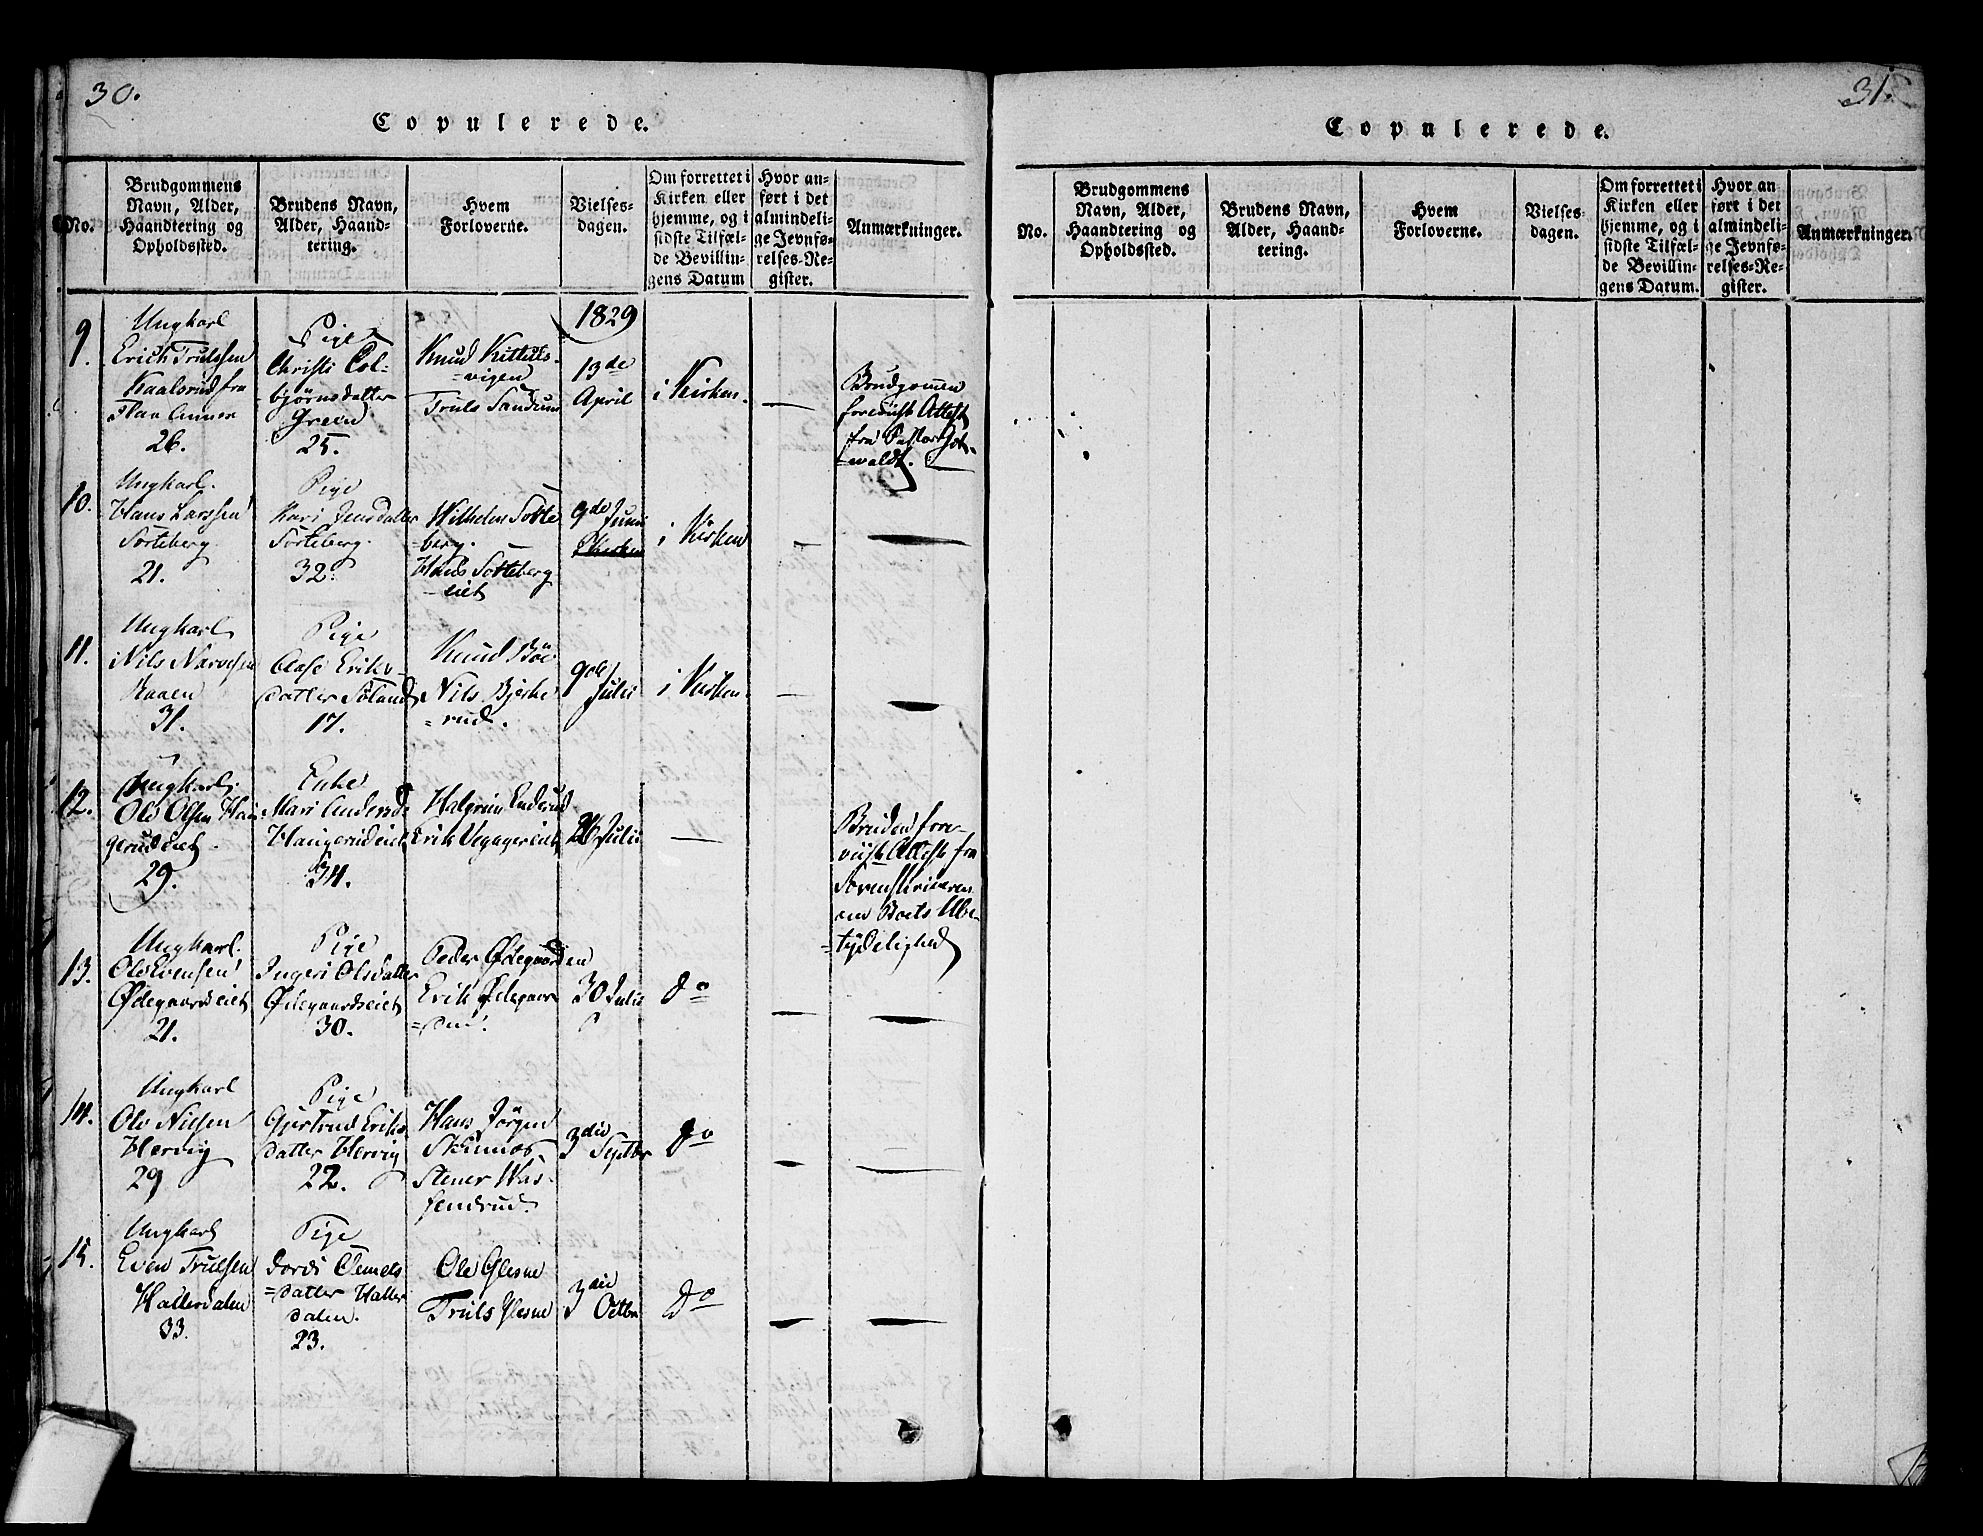 30.
Copulerede.
No.
Brudgommens
Navn, Alder,
Haandtering og
Opholdssted.
Brudens Navn,
Alder, Haand-
tering.
Hvem
Forloverne.
Vielses-
dagen.
Om forrettet i
Kirken eller
hjemme, og i
sidste Tilfæl-
de Bevillin-
gens Datum
Hvor an-
ført i det
almindeli-
ge Jevnfø-
relses-Re-
gister.
Anmærkninger.
1829
9.
Ungkarl
Erich Trulssen
fra
26.
Pige
Christi Col-
bjørnsdatter
Green
25.
Knud Kittels-
=vigen
Truls Sandum
13de
April
i Kirken.
—
Brudgommen
foreviist Attest
fra Pastor Got-
=waldt.
10.
Ungkarl.
Hans Larssen
Sorteberg
21.
Pige
Kari Jensdatter
Sorteberg.
32.
Wilhelm Sorte
=berg.
Hans Sorteberg
=eiet
9de Juni
i Kirken
—
—
11.
Ungkarl
Nils Narvesen
Raaen
31.
Pige
Olafe Eriks-
datter
17.
Knud Böe
Nils Bjerke
=rud.
9de
Julii
i Kirken
—
—
12.
Ungkarl
Ole Olsen Hau-
gerudeiet.
29.
Enke
Mari Andersd.
Haugerudeiet
34.
Halgrim Enderud
Erik
26 Julii
—
Bruden fore-
viiste Attest fra
Sorenskriveren
om Boets Ube-
=tydelighed
13.
Ungkarl.
Ole Evensen
Ødegaardseiet
21.
Pige
Ingeri Olsdatter
Ødegaardseiet
30.
Peder Ødegaarden
Erik Ødegaar-
=den.
30 Julii
Do
—
—
14.
Ungkarl
Ole Nilsen
Hervig
29
Pige
Gjertrud Eriks
datter Hervig
22.
Hans Jörgen
Skinnes
Stener Was-
sendrud.
3die
Septbr
Do
—
—
15.
Ungkarl
Even Trulsen
Hallerdalen
33.
Pige
Jordi
=datter Haller
dalen.
23.
Ole Glesne
Truls Glesne
3die
Octbr
Do
—
—
31.
Copulerede.
No.
Brudgommens
Navn, Alder,
Haandtering og
Opholdssted.
Brudens Navn,
Alder, Haand-
tering.
Hvem
Forloverne.
Vielses-
dagen.
Om forrettet i
Kirken eller
hjemme, og i
sidste Tilfæl-
de Bevillin-
gens Datum.
Hvor an
ført i det
almindeli-
ge Jevnfø-
relses-Re-
gister.
Anmærkninger.